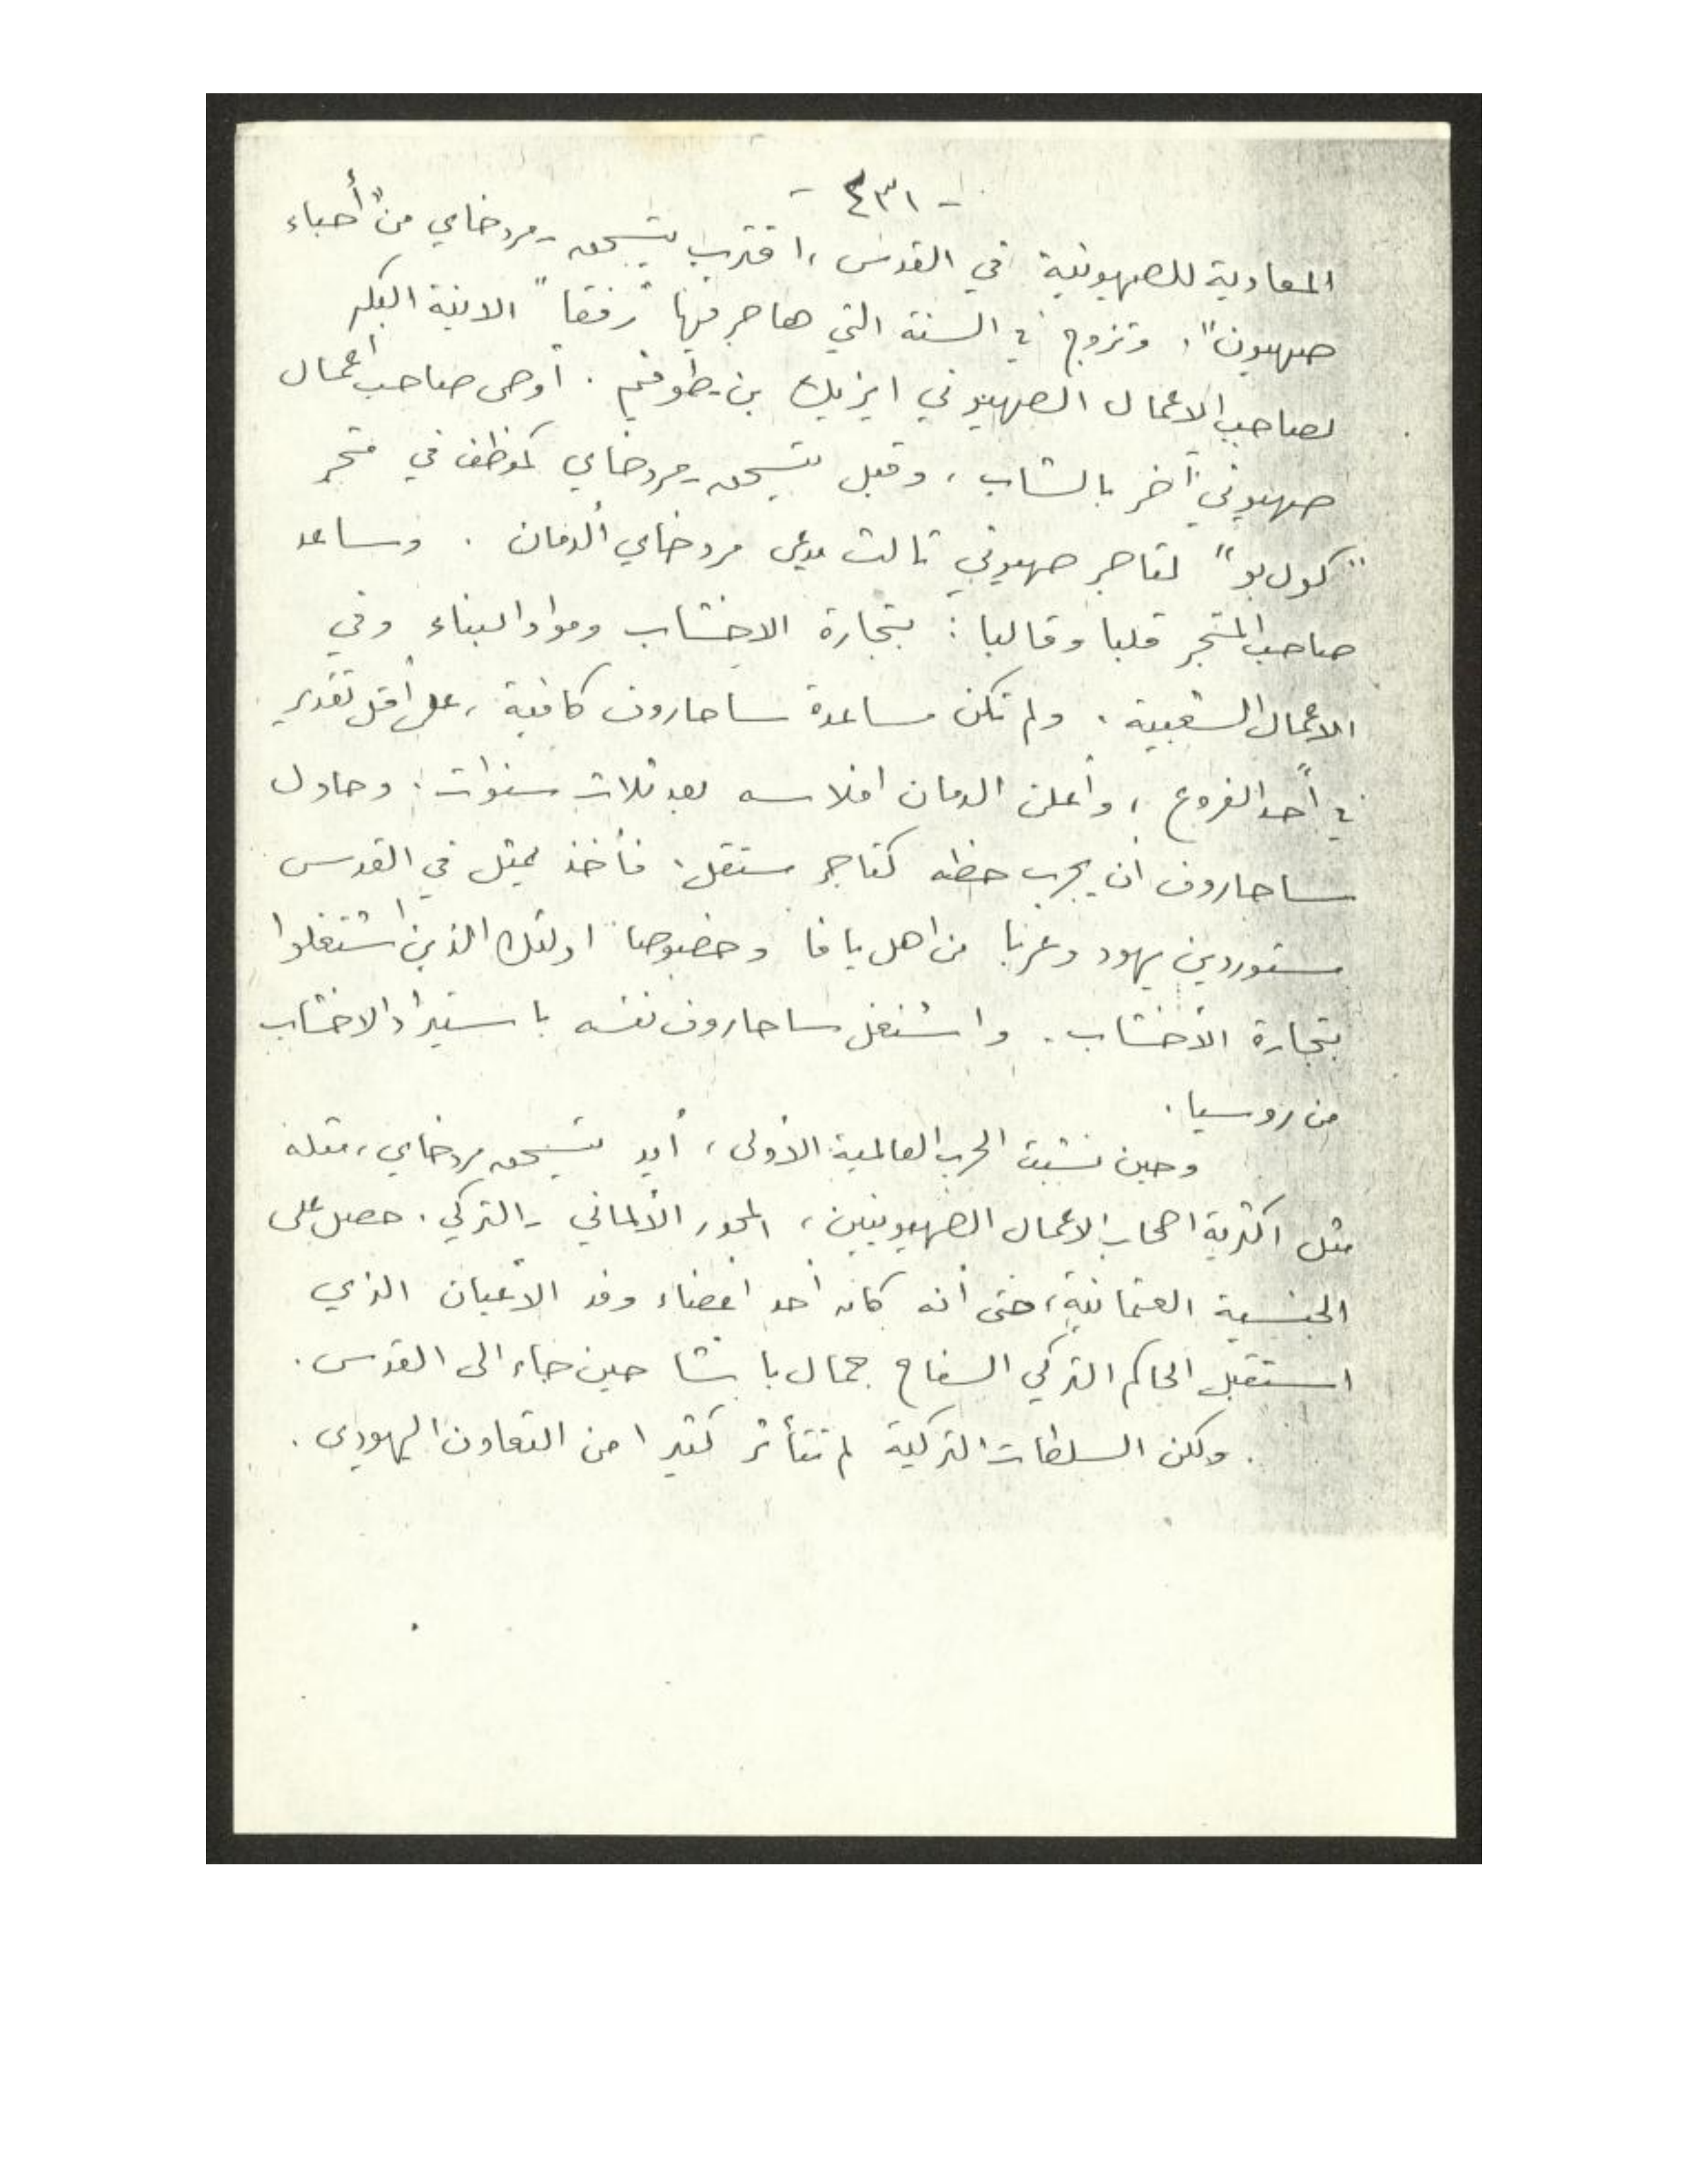 - ٤٣١ -
المعادية للصهيونية في القدس، اقترب يتسحق-مردخاي من "أحباء
صهيون"، وتزوج في السنة التي هاجر فيها "رفقا" الابنة البكر
لصاحب الاعمال الصهيوني ايزيك بن-طوفيم. أوصى صاحب أعمال
صهيوني آخر بالشاب، وقبل يتسحق-مردخاي كموظف في متجر
"كول بو" لتاجر صهيوني ثالث يدعى مردخاي ألدمان. وساعد
صاحب المتجر قلبا وقالبا: بتجارة الاخشاب ومواد البناء وفي
الاعمال الشعبية. ولم تكن مساعدة ساحاروف كافية، على أقل تقدير
في أحد الفروع، وأعلن الدمان افلاسه بعد ثلاث سنوات. وحاول
ساحاروف ان يجرب حظه كتاجر مستقل. فأخذ يمثل في القدس
مستوردين يهود وعربا من اهل يافا وخصوصا اولئك الذين اشتغلوا
بتجارة الأخشاب. واشتغل ساحاروف نفسه باستيراد الاخشاب
من روسيا.
وحين نشبت الحرب العالمية الأولى، أيد يتسحق مردخاي، مثله
مثل اكثرية اصحاب الاعمال الصهيونيين، المحور الألماني-التركي. حصل على
الجنسية العثمانية، حتى أنه كان أحد اعضاء وفد الأعيان الذي
استقبل الحاكم التركي السفاح جمال باشا حين جاء الى القدس.
ولكن السلطات التركية لم تتأثر كثيرا من التعاون اليهودي.